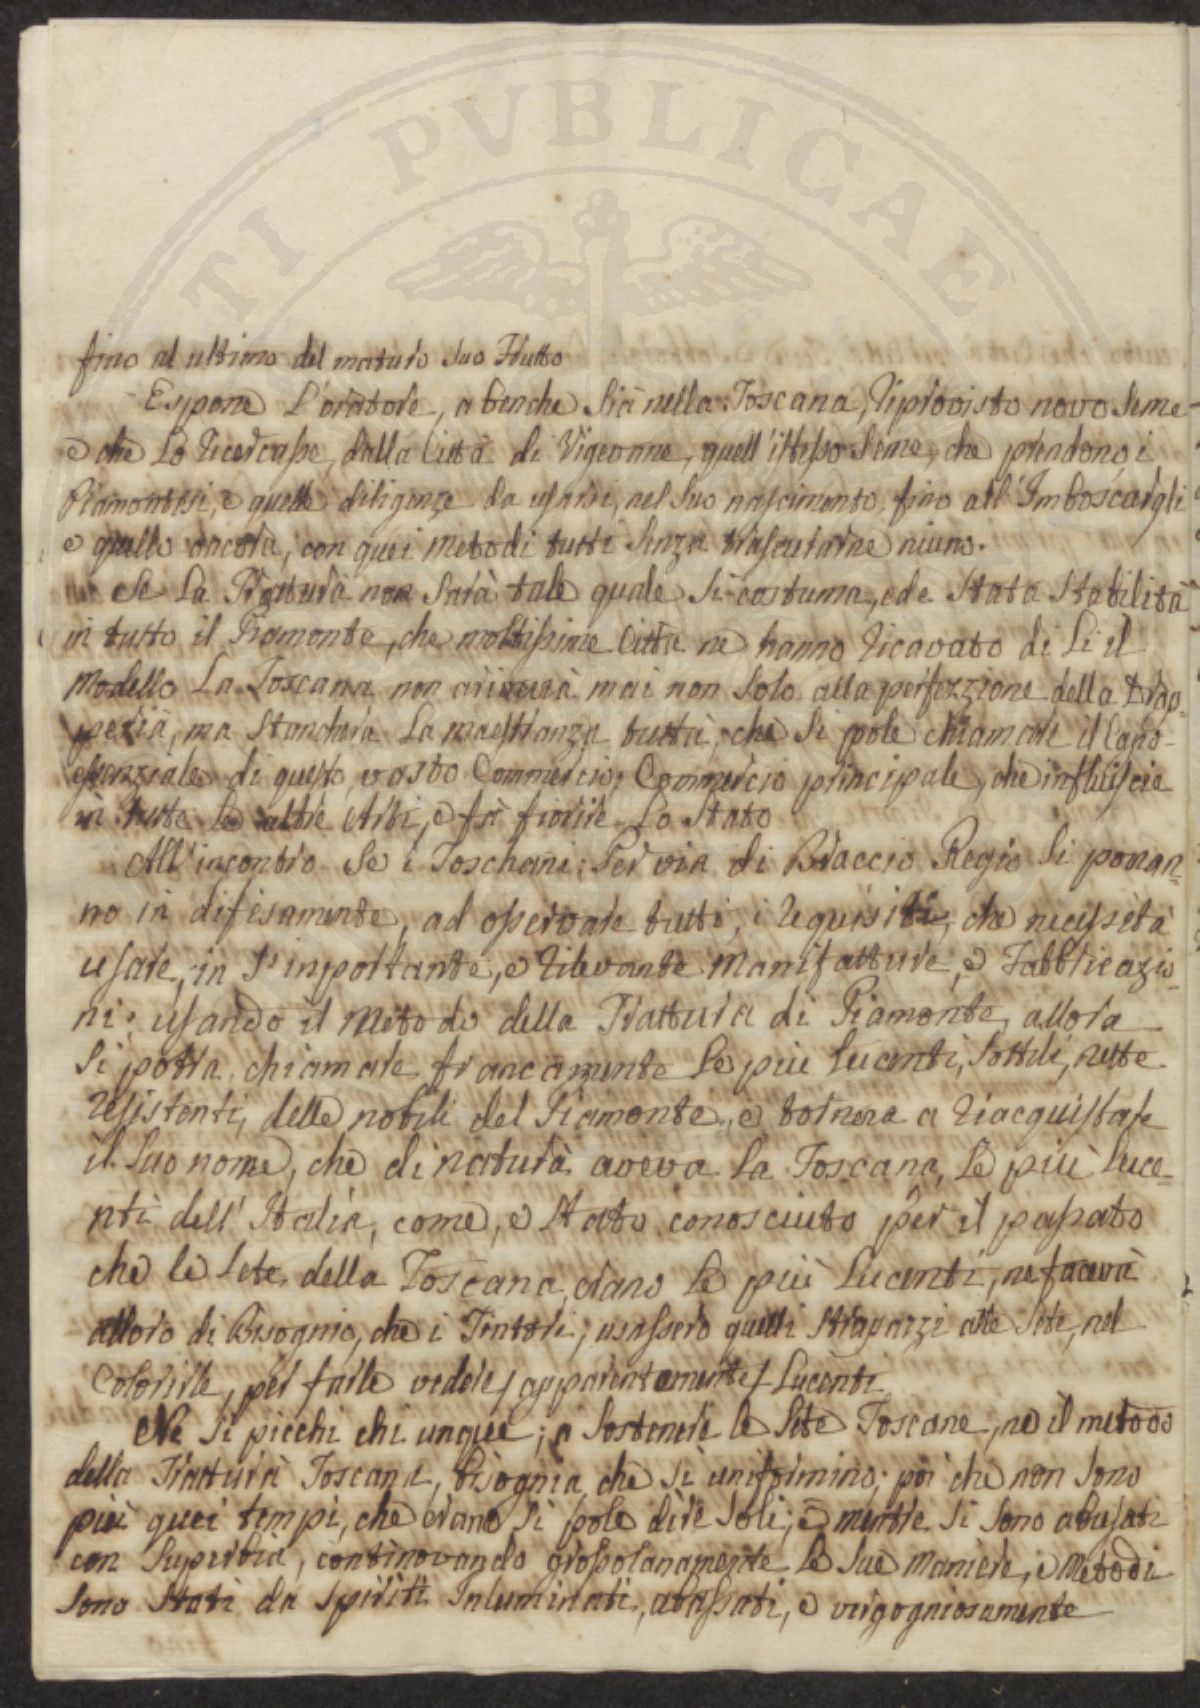 TI PVBLICAE
fino al ultimo del maturo suo Frutto
Espone L'oratore, a benche Sia nella Toscana, riprovisto novo Seme
e che Lo ricercasse, dalla Città di Vigevane, quell'istesso Seme, che prendono i
Piamontesi, e quelle diligenze da usarsi, nel Suo nascimento, fino all'Imboscargli
e quello ancora, con quei Metodi tutti Senza trascurarne niuno.
Se La Trattura non Sarà tale quale Si costuma, ed e Stata Stabilità
in tutto il Piamonte, che moltissime Città ne hanno ricavato di Li il
Modello La Toscana non arivera mai non Solo alla perfezzione della Drap-
peria, ma Stancherà La maestranza tutta, che Si pole chiamare il Capo-
essenziale di questo vasto Commercio, Commercio principale, che influiscie
in tutte Le altre Arti, e fà fiorire Lo Stato
All'incontro Se i Toschani; Per via di Braccio Regio Si ponan-
no in difisamente, ad osservare tutti, i requisiti, che necessità
usare, in S'inportante, e rilevante Manifatture, e Fabbricazio-
ni; usando il Metodo della Trattura di Piamonte, allora
Si potra chiamare francamente Le più Lucenti, Sottili, nette
resistenti, delle nobili del Piamonte, e tornera a riacquistare
il Suo nome, che di natura aveva La Toscana, Le più Luce-
nti dell'Italia, come, e Stato conosciuto per il passato
che le Sete della Toscana, erano Le più Lucenti, ne faceva
alloro di Bisognio, che i Tintori, usassero quelli Strapazzi alle Sete, nel
Colorirle, per farle vedere / apparentemente / Lucenti
Ne Si picchi chi unque; a Sostenere le Sete Toscane, ne il metodo
della Trattura Toscana, bisognia che Si uniformino; poi che non Sono
più quei tempi, che erano Si pole dire Soli; e mentre Si Sono abusati
con Superbia, continovando grossolanamente Le Sue Maniere, e Metodi
Sono Stati da Spiriti Inluminati, abassati, e vergogniosamente